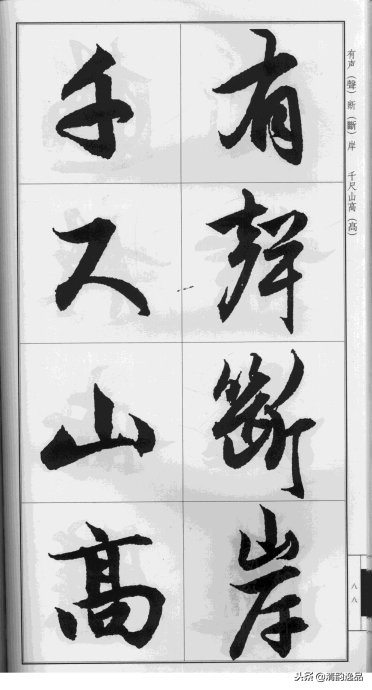 有聲斷岸
千尺山高
有声（聲）断（斷）岸　千尺山高（髙）
八八
头条 @清韵逸品